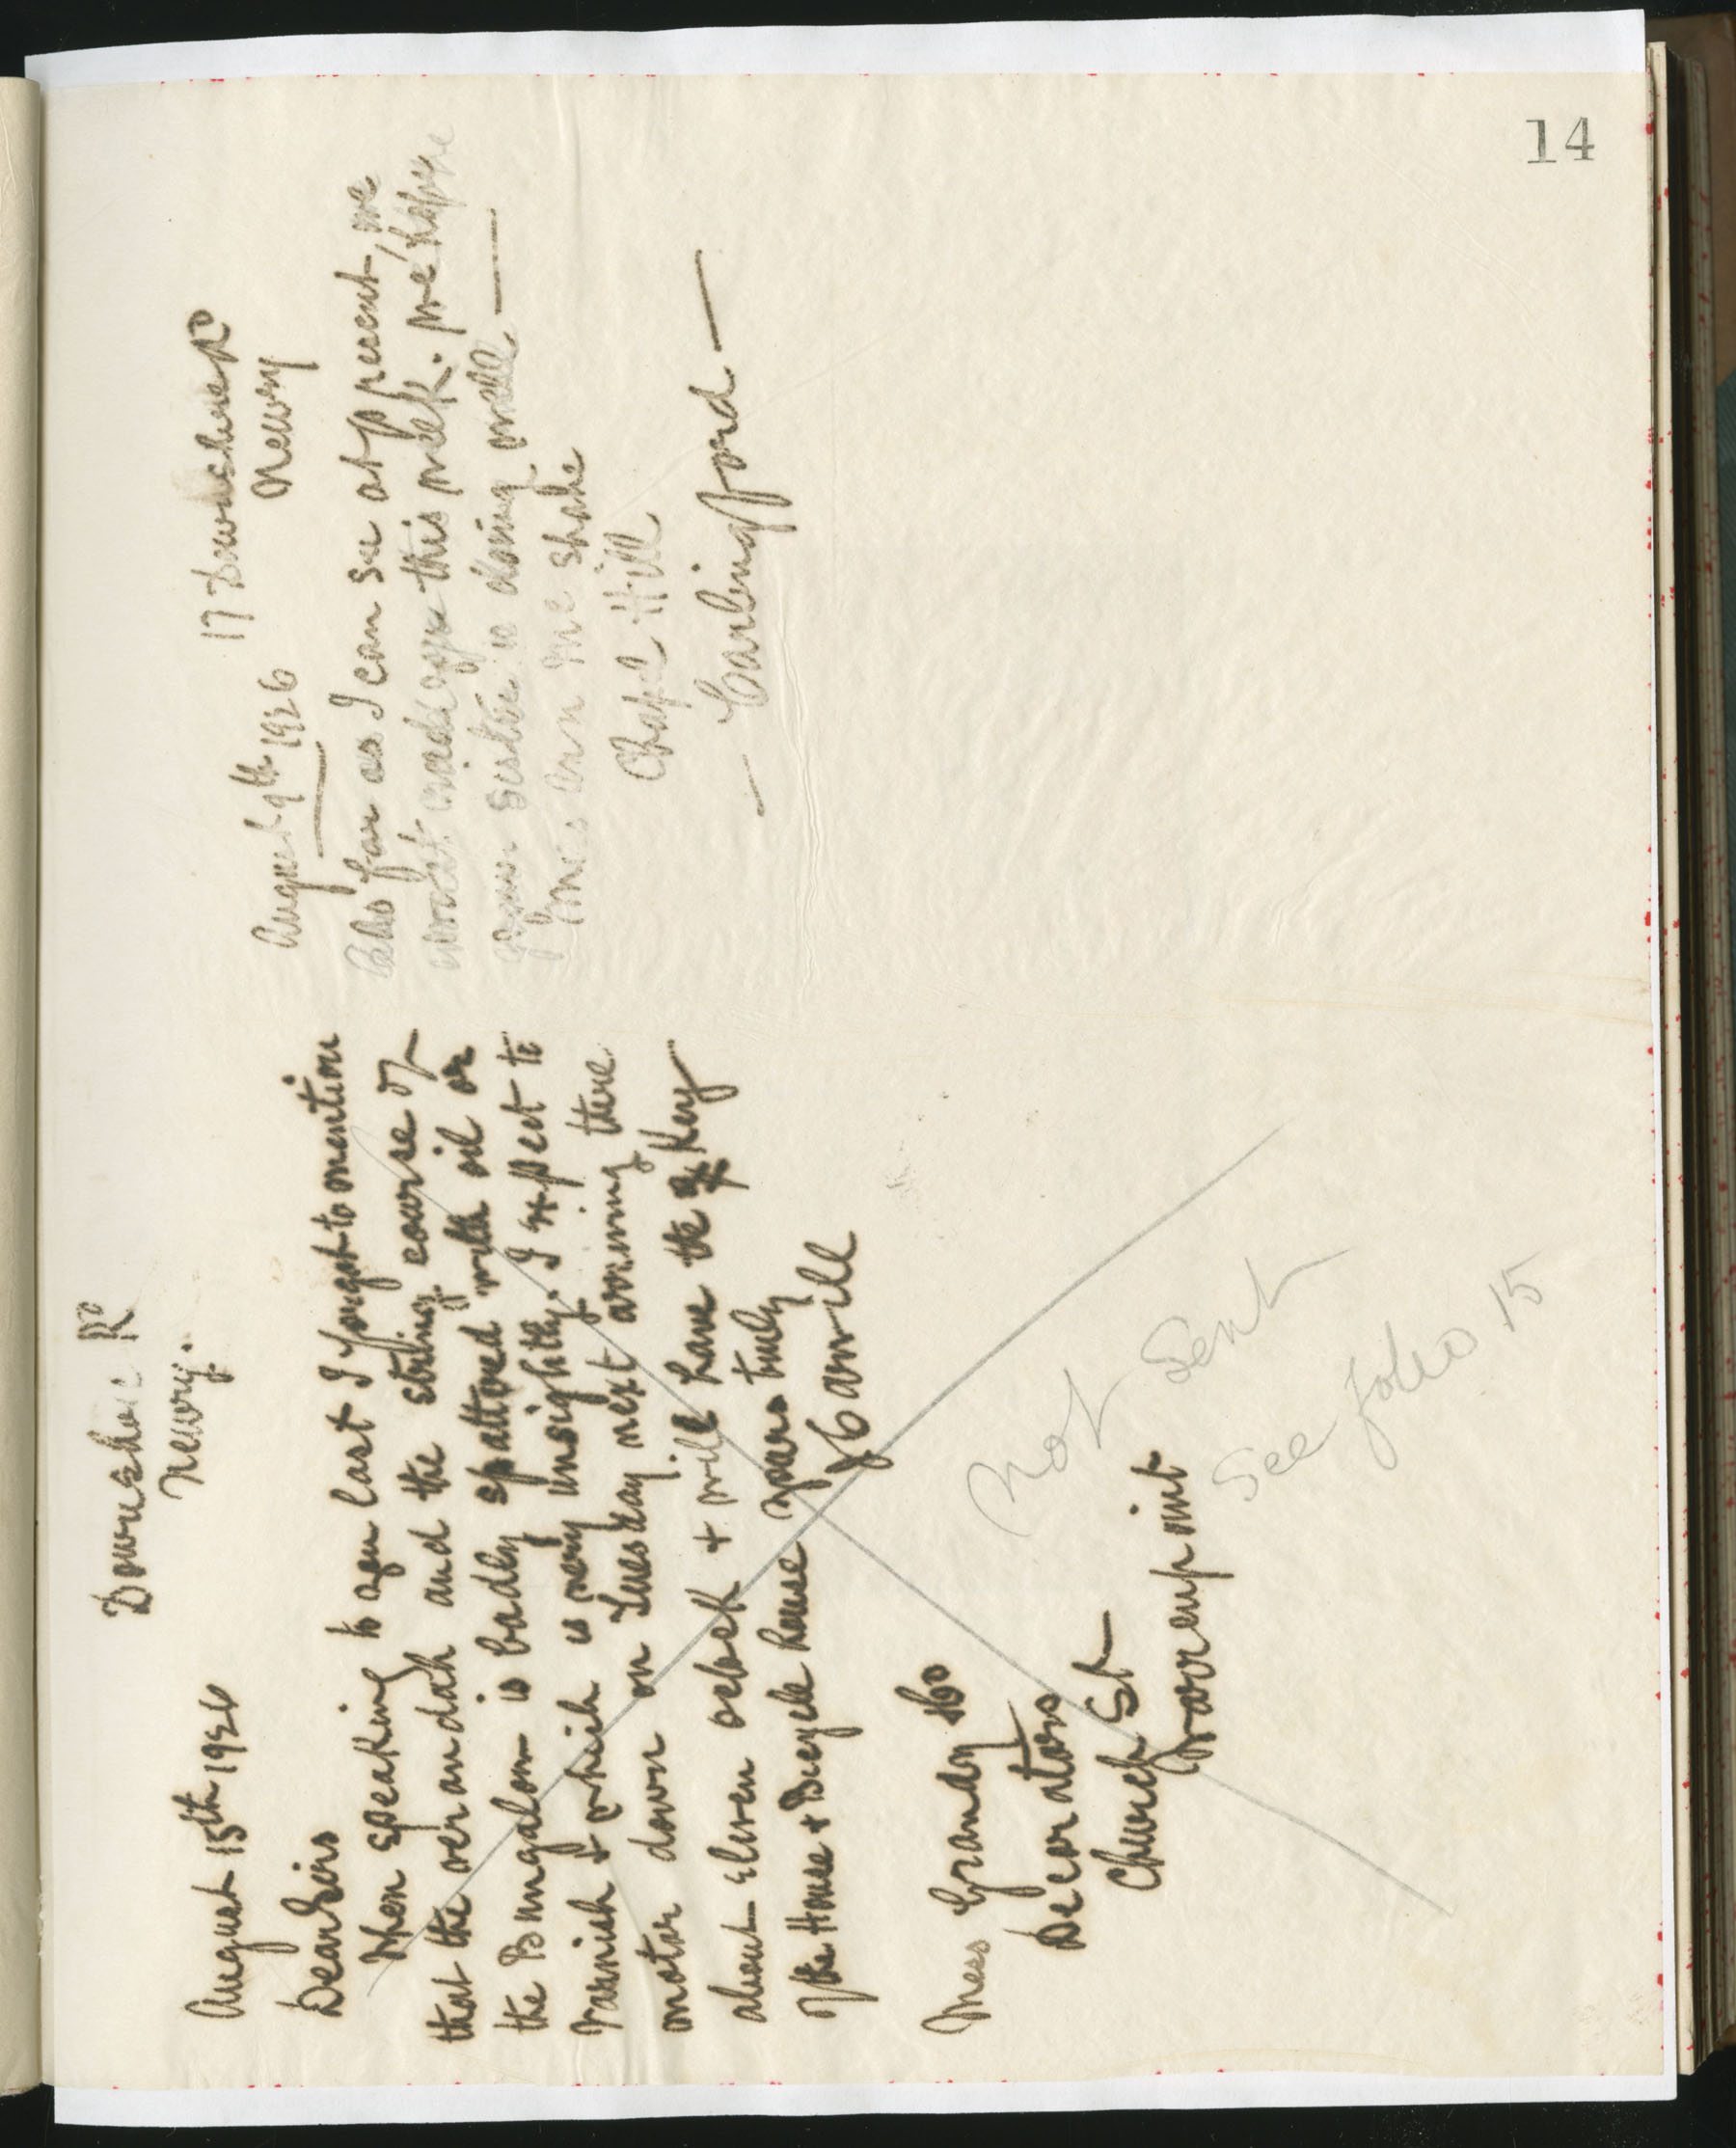 14
Downshire Rd
Newry.
August 15th 1926
Dear Sirs
When speaking to you last I forgot to mention
that the verandah and the string course of
the Bungalow is badly spattered with oil or
varnish & which is very unsightly. I expect to
motor down on Tuesday next arriving there
about eleven oclock & will have the Key
of the House & Bicycle house yours truly
J Carvill
Mess Grandy & Co
Decorators
Church St
Warrenpoint
Not Sent
See folio 15
17 Downshire Rd
Newry
August 9th 1926
As far as I can see at present we
this week. We hope
your sister is doing well
Mrs Ann McShane
Chapel Hill
Carlingford